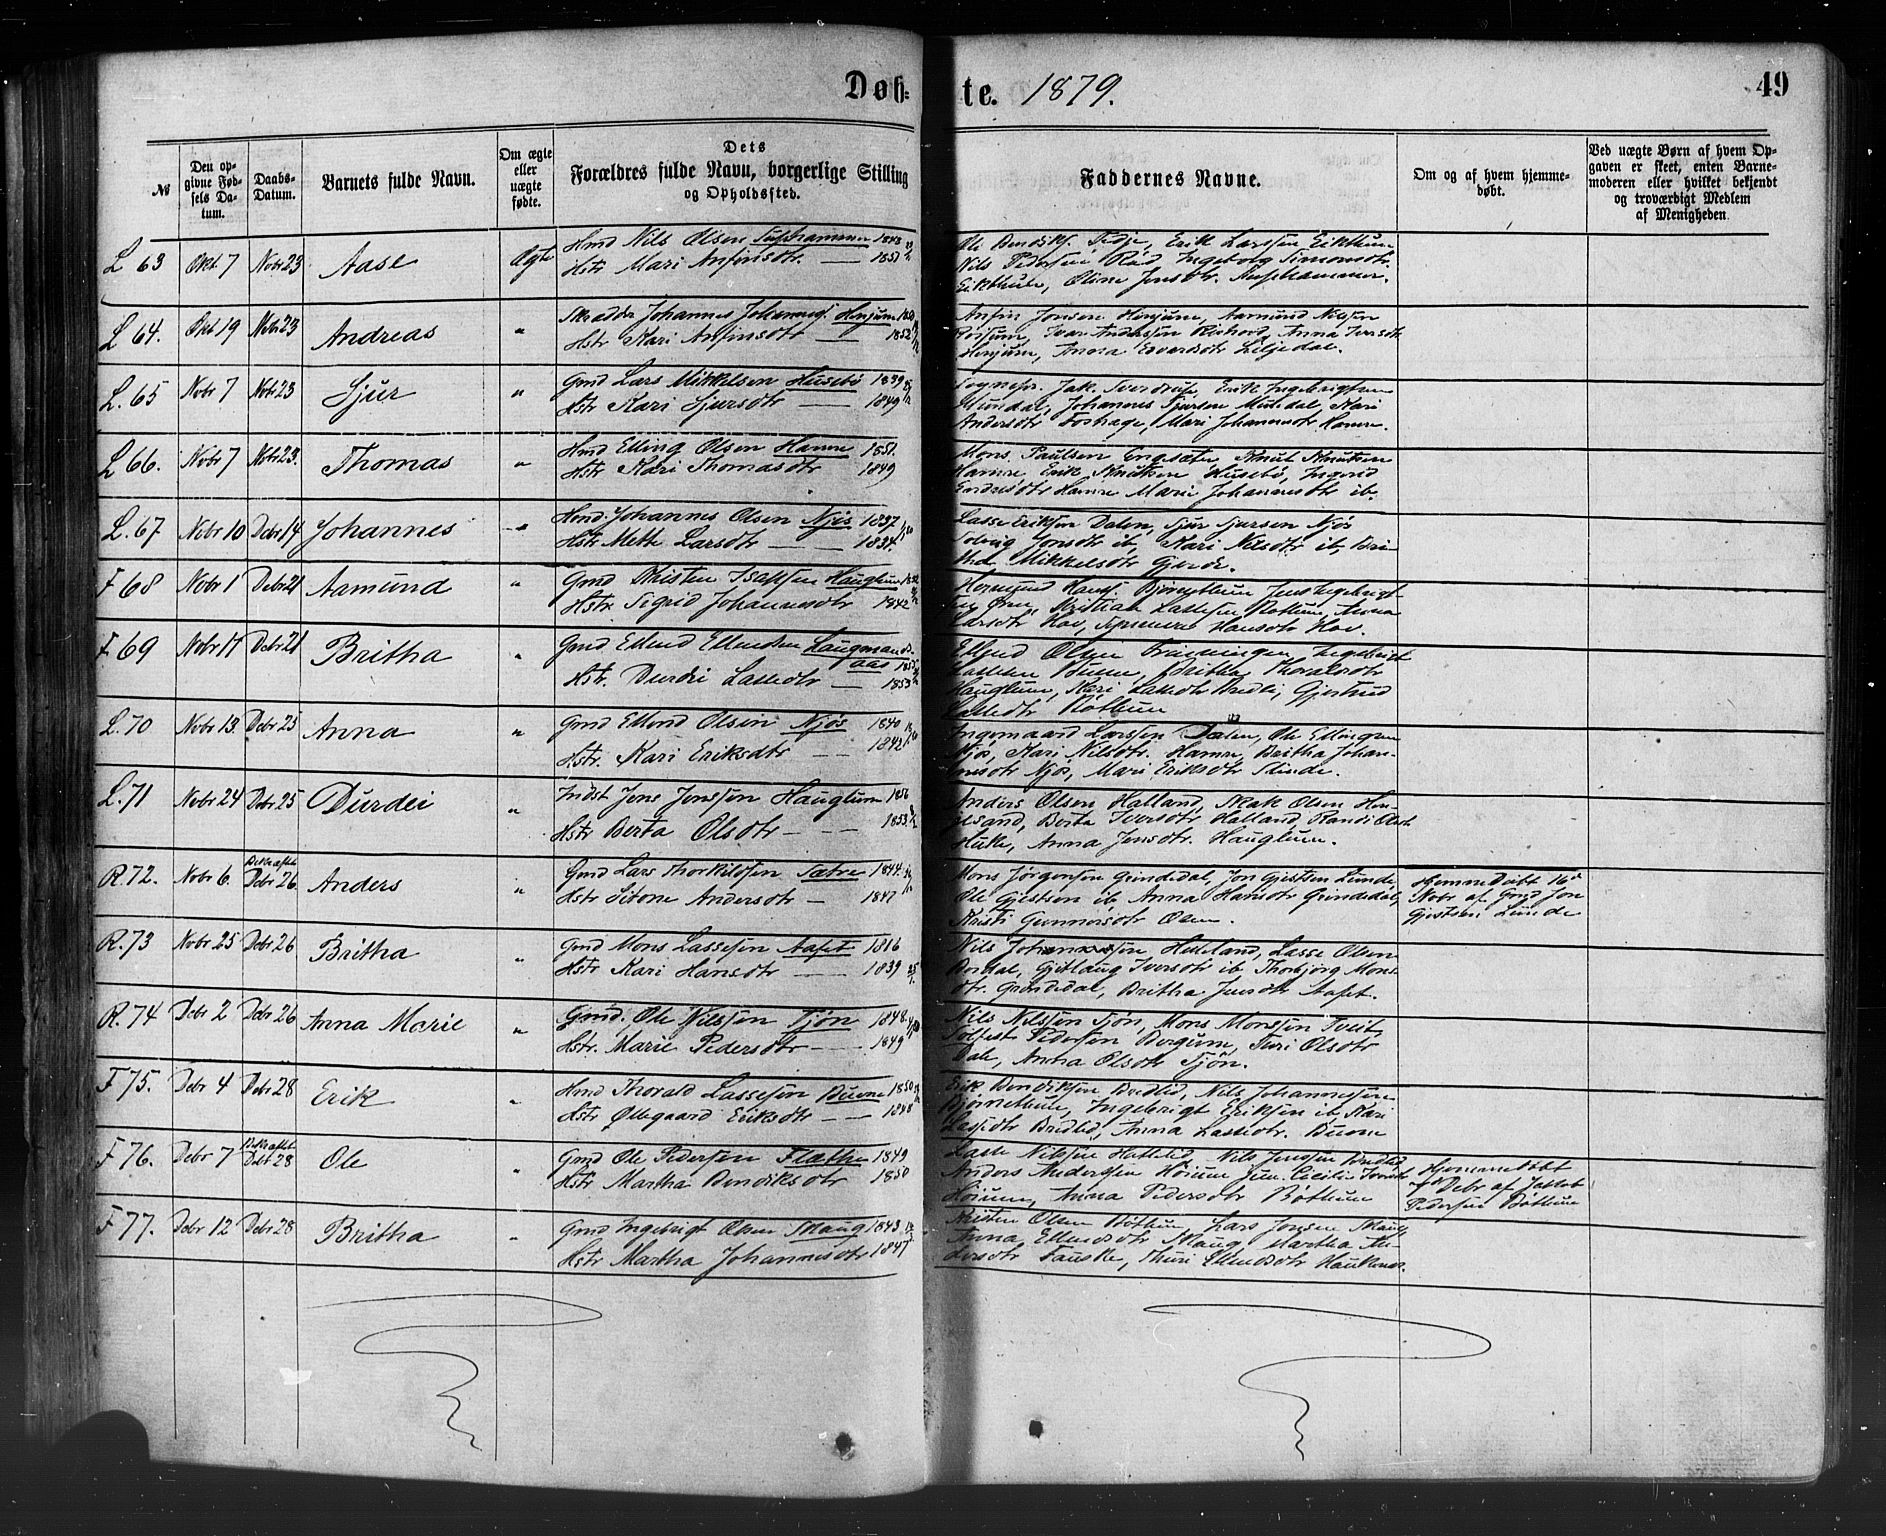 Døb-
te. 1879.
49
№
Den op-
givne Fød-
sels Da-
tum.
Daabs-
Datum.
Barnets fulde Navn.
Om ægte
eller
uægte
fødte.
Dets
Forældres fulde Navn, borgerlige Stilling
og Opholdssted.
Faddernes Navne.
Om og af hvem hjemme-
døbt.
Ved uægte Børn af hvem Op-
gaven er skeet, enten Barne-
moderen eller hvilket bekjendt
og troværdigt Medlem
af Menigheden.
L 63 Okt 7 Nobr 23 Aase Ægte Hmd Nils Olsen 1848
Hstr Mari Anfinsdtr. — 1851
Ole Bendiks. Tedje, Erik Larssen Eikthun
Nils Pedersen Rød Ingeborg Simonsdtr.
Eikthun, Oline Jensdtr.
L 64. Okt 19 Nobr 23 Andreas " Skrædder Johannes Johannes. Henjum 1850
Hstr Kari Anfinsdtr — 1852
Anfin Jonsen Henjum, Aamund Nilssen
Iver Anderssen Anna Iversdtr
Henjum, Anna Edvardsdtr Liljedal.
L. 65 Nobr 7 Nobr 23 Sjur " Gmd Lars Mikkelsen Husebø 1839
Hstr Kari Sjursdtr — 1849
Sognepr. Jak. Sverdrup, Erik Ingebrigtsen
Mundal, Johannes Sjursen Mundal, Kari
Andersdtr Fosshage, Mari Johannesdtr Hamre.
L 66. Nobr 7 Nobr 23. Thomas " Hmd Elling Olsen Hamre 1851.
Hstr Kari Thomasdtr 1849
Mons Paulsen Engesæter Knut Knutsen
Hamre Erik Knutsen Husebø, Ingrid
Endresdtr Hamre Marie Johannesdtr ib.
L. 67 Nobr 10 Debr 14 Johannes " Hmd. Johannes Olsen Njøs 1837
Hstr. Mette Larsdtr — — 1834.
Lasse Eriksen Dalen, Sjur Sjursen Njøs
Solveig Jonsdtr ib, Kari Nilsdtr ib, Bri-
tha Mikkelsdtr Gjerde.
F 68 Nobr 1 Debr 21 Aamund " Gmd Kristen Isaksen Hauglum
Hstr. Segrid Johannesdtr 1842
Hermund Hans. Bjørnethun Jens Ingebrigt-
sen Øren, Kristian Lassesen Bøthun, Anna
Larsdtr Hov, Synneva Hansdtr Hov.
F 69 Nobr 17 Debr 21 Britha " Gmd Ellend Ellendsen Laugmands-
aas
Hstr. Durdei Lassedtr — 1853
Ellend Olsen Ingebrigt
Lassesen Buene, Britha Thoraldsdtr
Hauglum, Kari Lassedtr Bredli, Gjertrud
Lassedtr Bøthun
L. 70 Nobr 13. Debr 25 Anna " Gmd Ellend Olsen Njøs 1840
Hstr. Kari Eriksdtr — 1842
Ingemaard Larssen Dalen, Ole Ellingsen
Njøs, Kari Nilsdtr. Hamre, Britha Johan-
nesdtr Njøs, Mari Eriksdtr Slinde.
L. 71 Nobr 24 Debr 25 Durdei " Indst Jens Jenssen Hauglum 1856
Hstr Berta Olsdtr — — 1853.
Anders Olsen Halland, Isak Olsen Hen-
jesand, Berta Iversdtr Halland, Randi Olsdtr
Huke, Anna Jensdtr. Hauglum.
R. 72. Nobr 6. Bekræftet
Debr 26 Anders " Gmd Lars Thorkildsen Sætre 1844.
Hstr Andersdtr — 1847
Mons Jørgensen Grindedal, Jon Gjestsen Lunde
Ole Gjestsen ib Anna Hansdtr Grindedal,
Kristi Gunnarsdtr Olsen.
Hjemmedøbt 16de
Nobr af Gmd Jon
Gjestsen Lunde
R. 73 Nobr 25 Debr 26 Britha " Gmd Mons Lassesen Aaset 1816
Hstr Kari Hansdtr — 1839
Nils Johannessen Husland, Lasse Olsen
Bordal, Gjetlaug Iversdtr ib Thorbjørg Mons-
dtr. Grindedal, Britha Jensdtr Aaset.
R. 74 Debr 2 Debr 26 Anna Marie " Gmd. Ole Nilssen Tjøn 1848.
Hstr. Marie Pedersdtr — 1849
Nils Nilssen Tjøn, Mons Monssen Tveit,
Solfest Pedersen Bergum, Turi Olsdtr
Dale, Anna Olsdtr Tjøn.
F 75. Debr 4 Debr 28 Erik " Hmd Thorald Lassesen Buene 1850
Hstr Øllegaard Eriksdtr — 1848
Erik Bendiksen Bredlid, Nils Johannessen
Bjørnethun, Ingebrigt Eriksen ib, Kari
Lassedtr Bredlid, Anna Lassedtr. Buene
F 76. Debr 7 Bekræftet
Debr 28 Ole " Gmd Ole Pedersen Flæthe 1849
Hstr Martha Bendiksdtr 1850
Lasse Nilssen Hatlelid, Nils Jenssen Bredlid
Anders Anderssen Høium Jun. Cecilie Iversdtr
Høium, Anna Pedersdtr Bøthun
Hjemmedøbt
Debr af Jakob
Pedersen Bøthun
F 77. Debr 12 Debr 28 Britha " Gmd Ingebrigt Olsen Skaug 1843
Hstr Martha Johannesdtr 1847
Kristen Olsen Bøthun, Lars Jonsen Skaug
Anna Ellendsdtr Skaug Martha An-
dersdtr Fauske, Thuri Ellendsdtr Haukenes.